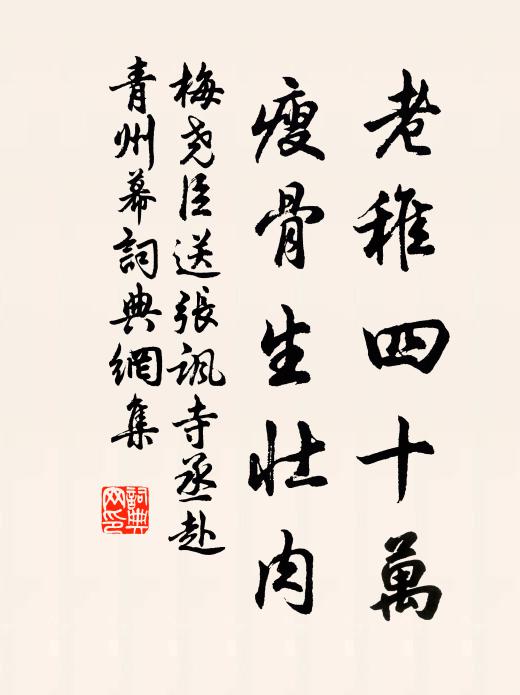 老稚四十萬
瘦骨生壯肉
梅堯臣送張諷寺丞赴
青州幕詞典網集
詞典
网印